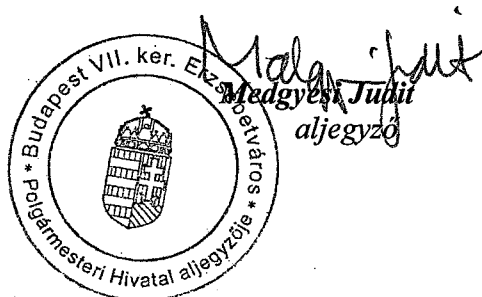 Medgyesi Judit
aljegyző
Budapest VII. ker. Erzsébetváros
* Polgármesteri Hivatal aljegyzője *